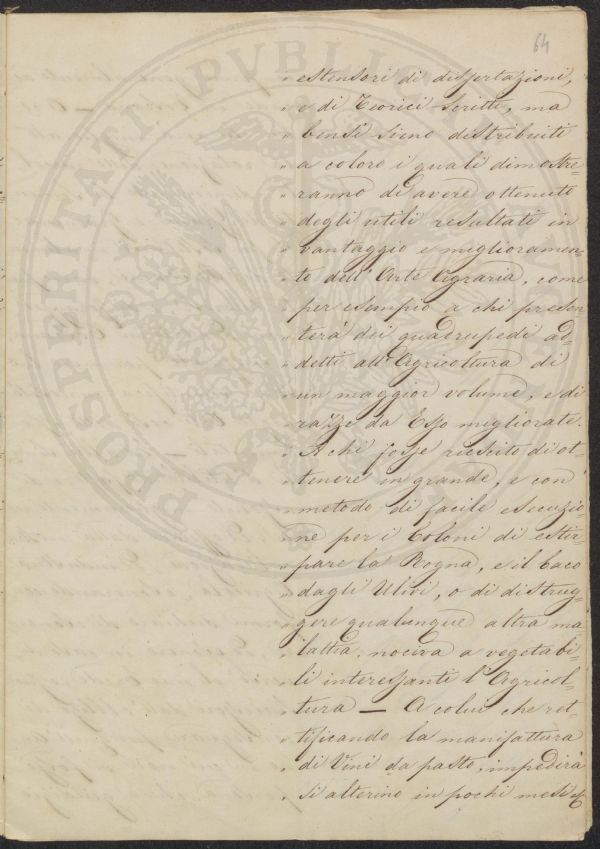 64
" estensori di dissertazioni,
" e di Teorici Scritti, ma
" bensì sieno distribuiti
" a coloro i quali dimostre=
" ranno di avere ottenuto
" degli utili resultati in
" vantaggio e miglioramen=
" to dell'Arte Agraria, come
" per esempio a chi presen
" terà dei quadrupedi ad=
" detti all'Agricoltura di
" un maggior volume, e di
" razze da Esso migliorate.
" A chi fosse riescito di ot=
" tenere in grande, e con
" metodo di facile esecuzio=
" ne per i Coloni di estir=
" pare la Rogna, e il baco
" dagli Ulivi, o di distrug=
" gere qualunque altra ma=
" lattia nociva a vegetabi=
" li interessanti l'Agricol=
" tura — A colui che ret=
" tificando la manifattura
" di Vini da pasto, impedirà
" si alterino in pochi mesi &
PROSPERITATI PVBLIC